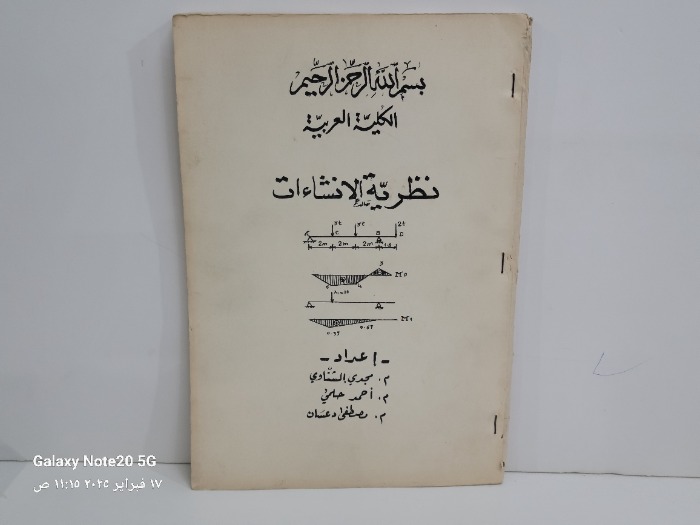 بسم الله الرحمن الرحيم
الكلية العربية
نظرية الإنشاءات
C
B
D
2t
2m
2m
2m
M0
M1
- إعداد -
م. مجدي الشناوي
م. أحمد حلمي
م. مصطفى دعسان
Galaxy Note20 5G
١٧ فبراير ٢٠٢٥ ١١:١٥ ص